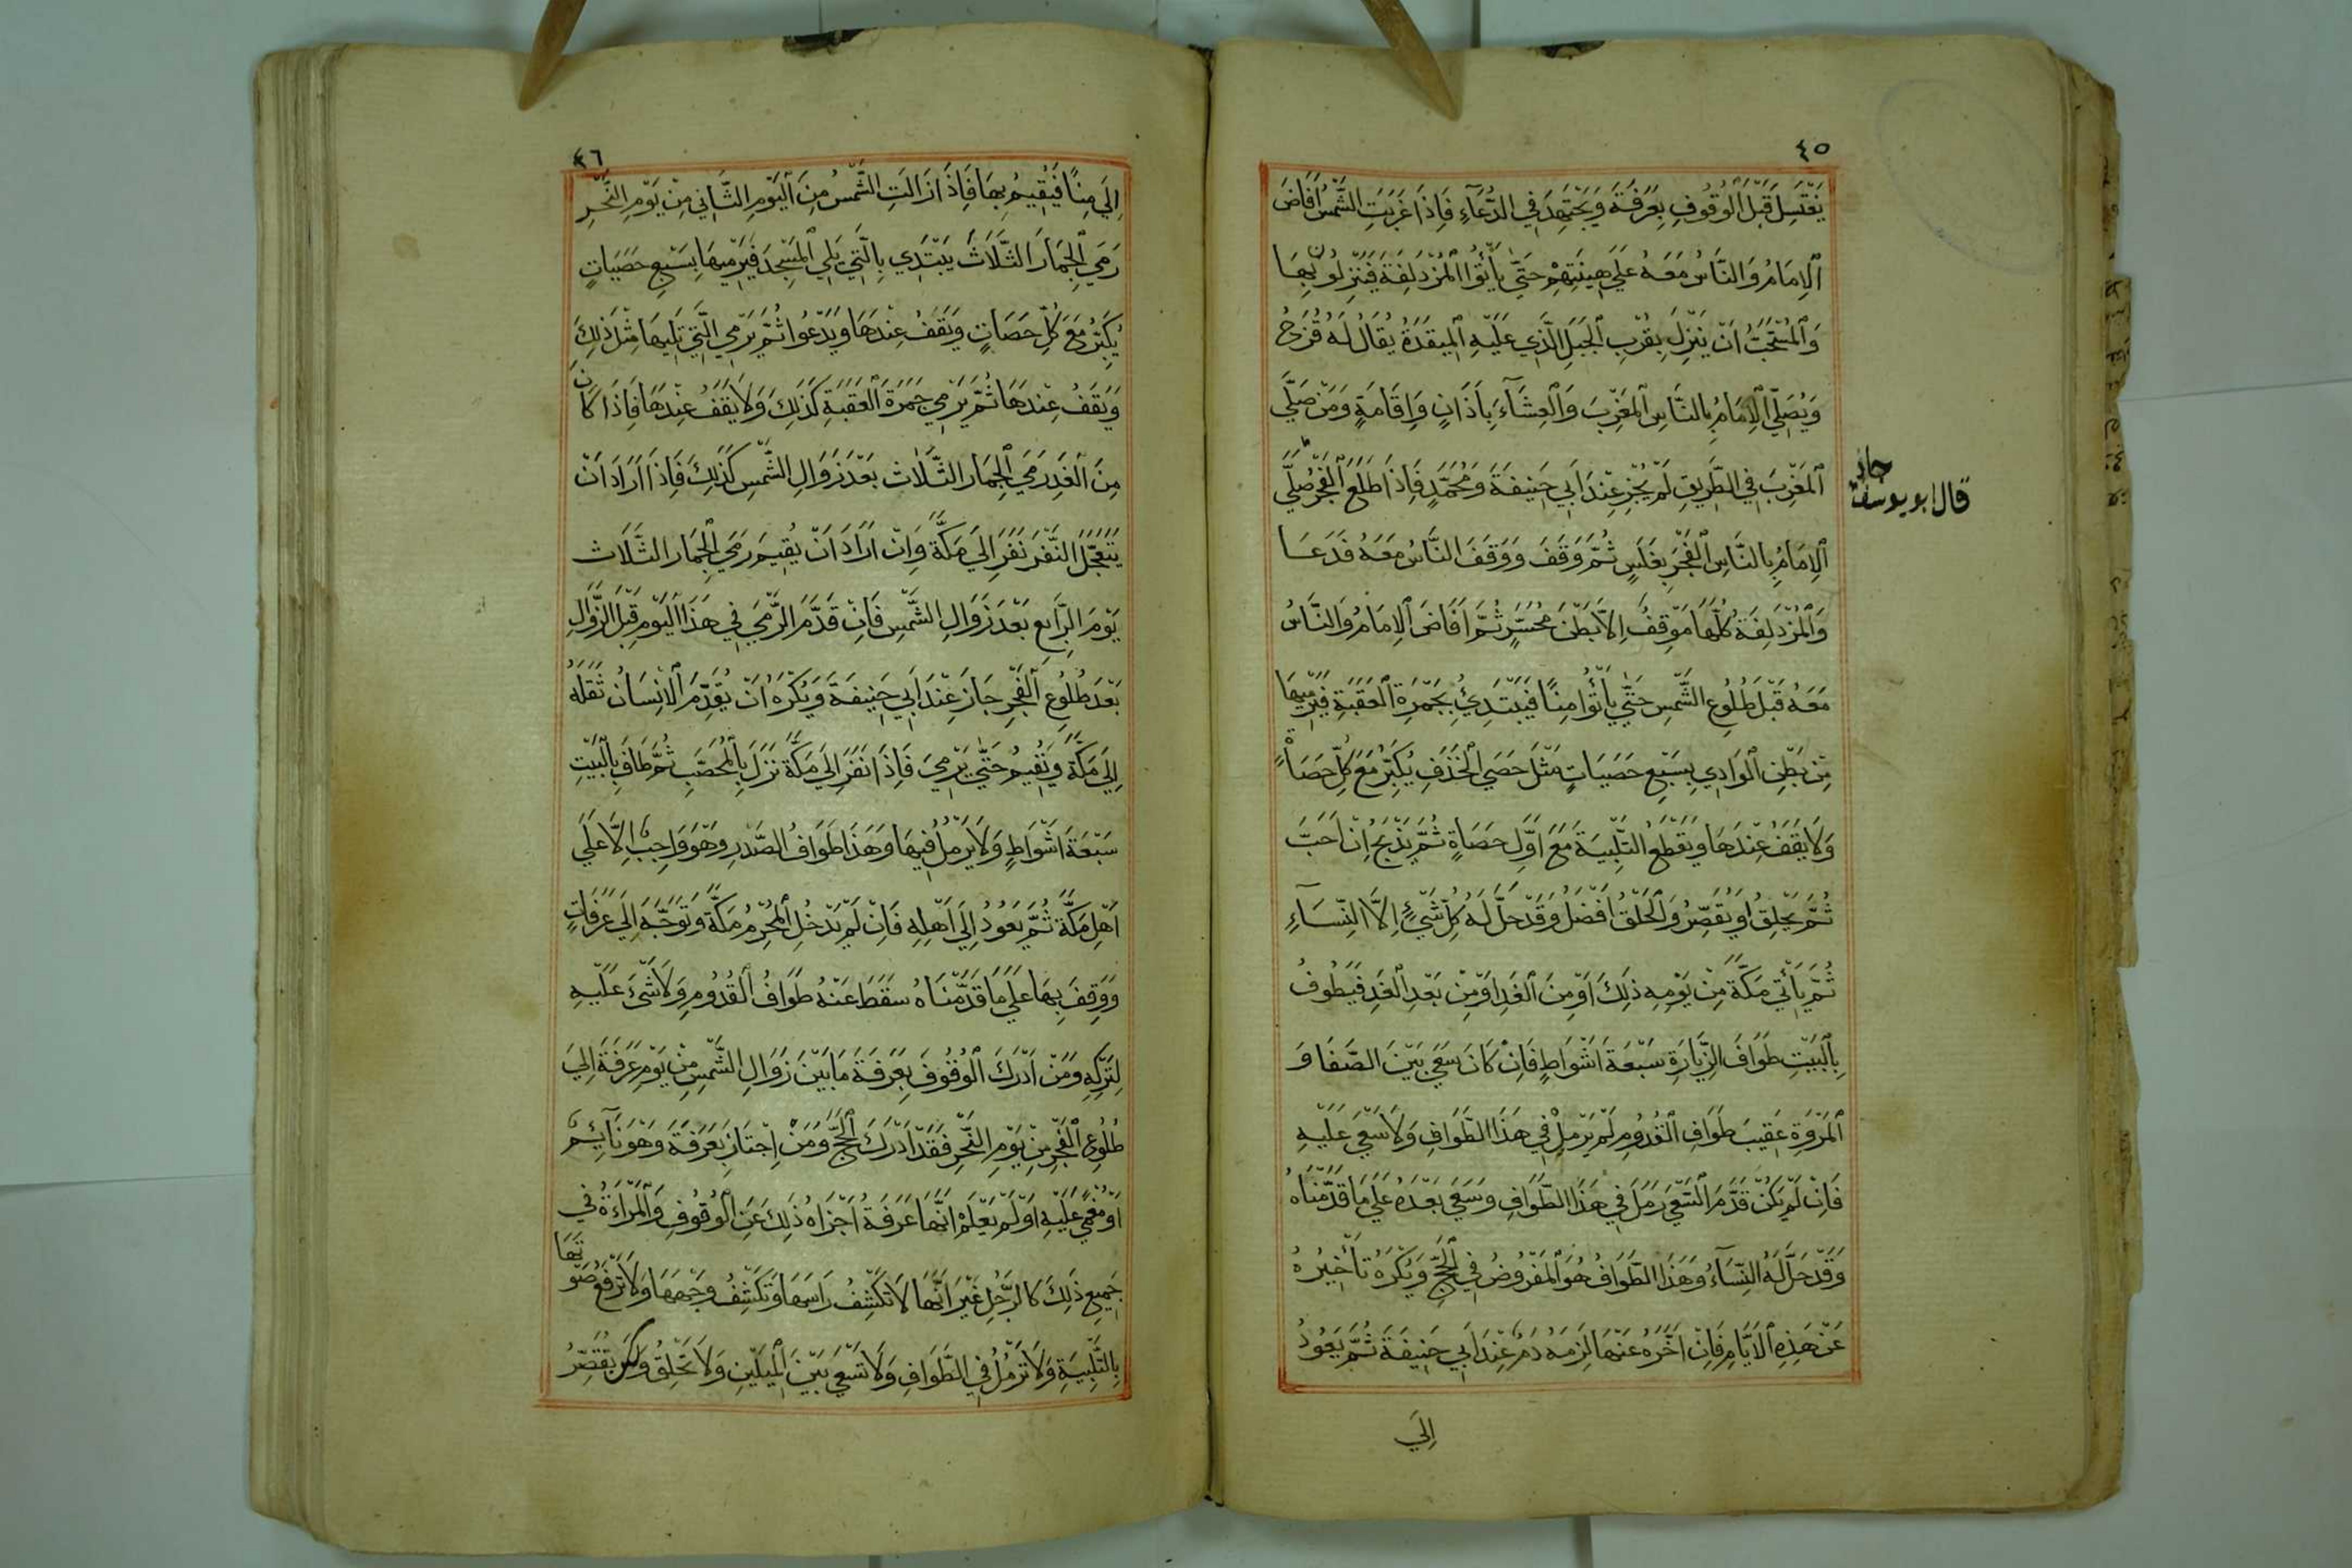 ٤٥
يَغْتَسِلَ قَبْلَ الْوُقُوفِ بِعَرَفَةَ وَيَجْتَهِدَ فِي الدُّعَآءِ فَاِذَا غَرَبَتِ الشَّمْسُ اَفَاضَ
اَلْاِمَامُ وَالنَّاسُ مَعَهُ عَلَي هِينَتِهِمْ حَتَّي يَأْتُوا الْمُزْدَلِفَةَ فَيَنْزِلُونَ بِهَا
وَالْمُسْتَحَبُّ اَنْ يَنْزِلَ بِقُرْبِ الْجَبَلِ الَّذِي عَلَيْهِ الْمِيقَدَةُ يُقَالُ لَهُ قُزَحُ
وَيُصَلِّي الْاِمَامُ بِالنَّاسِ الْمَغْرِبَ وَالْعِشَآءَ بِاَذَانٍ وَاِقَامَةٍ وَمَنْ صَلَّي
اَلْمَغْرِبَ فِي الطَّرِيقِ لَمْ يُجْزِ عِنْدَ اَبِي حَنِيفَةَ وَمُحَمَّدٍ فَاِذَا طَلَعَ الْفَجْرُ صَلَّي
قال ابو يوسف
جاز
اَلْاِمَامُ بِالنَّاسِ الْفَجْرَ بِغَلَسٍ ثُمَّ وَقَفَ وَوَقَفَ النَّاسُ مَعَهُ فَدَعَا
وَالْمُزْدَلِفَةُ كُلُّهَا مَوْقِفٌ اِلَّا بَطْنَ مُحَسِّرٍ ثُمَّ اَفَاضَ الْاِمَامُ وَالنَّاسُ
مَعَهُ قَبْلَ طُلُوعِ الشَّمْسِ حَتَّي يَأْتُوا مِنًا فَيَبْتَدِئُ بِجَمْرَةِ الْعَقَبَةِ فَيَرْمِيهَا
مِنْ بَطْنِ الْوَادِي بِسَبْعِ حَصَيَاتٍ مَثْلَ حَصَي الْخَذَفِ يُكَبِّرُ مَعَ كُلِّ حَصَاةٍ
وَلَا يَقَفُ عِنْدَهَا وَيَقْطَعُ التَّلْبِيَةَ مَعَ اَوَّلِ حَصَاةٍ ثُمَّ يَذْبَحُ اِنْ اَحَبَّ
ثُمَّ يَحْلِقُ اَوْ يُقَصِّرُ وَالْحَلْقُ اَفْضَلُ وَقَدْ حَلَّ لَهُ كُلُّ شَيْءٍ اِلَّا النِّسَآءِ
ثُمَّ يَأْتِي مَكَّةَ مِنْ يَوْمِهِ ذَلِكَ اَوْ مِنَ الْغَدِ اَوْ مِنْ بَعْدِ الْغَدِ فَيَطُوفُ
بِالْبَيْتِ طَوَافَ الزِّيَارَةِ سَبْعَةَ اَشْوَاطٍ فَاِنْ كَانَ سَعَي بَيْنَ الصَّفَا وَ
اَلْمَرْوَةِ عَقِيبَ طَوَافِ الْقُدُومِ لَمْ يَرْمِلْ فِي هَذَا الطَّوَافِ وَلَا سَعْيَ عَلَيْهِ
فَاِنْ لَمْ يَكُنْ قَدَّمَ السَّعْيَ رَمَلَ فِي هَذَا الطَّوَافِ وَسَعَي بَعْدَهُ عَلَي مَا قَدَّمْنَاهُ
وَقَدْ حَلَّ لَهُ النِّسَآءُ وَهَذَا الطَّوَافُ هُوَ الْمَفْرُوضُ فِي الْحَجِّ وَيُكْرَهُ تَأْخِيرُهُ
عَنْ هَذِهِ الْاَيَّامِ فَاِنْ اَخَّرَهُ عَنْهَا لَزِمَهُ دَمٌ عِنْدَ اَبِي حَنِيفَةَ ثُمَّ يَعُودُ
اِلَي
٤٦
اِلَي مِنًا فَيُقِيمُ بِهَا فَاِذَا زَالَتِ الشَّمْسُ مِنَ الْيَوْمِ الثَّانِي مِنْ يَوْمِ النَّحْرِ
رَمَي الْجِمَارَ الثَّلَاثَ يَبْتَدِي بِالَّتِي يَلِي الْمَسْجِدَ فَيَرْمِيهَا بِسَبْعِ حَصَيَاتٍ
يُكَبِّرُ مَعَ كُلِّ حَصَاتٍ وَيَقَفُ عِنْدَهَا وَيَدْعُوا ثُمَّ يَرْمِي الَّتِي تَلِيهَا مِثْلَ ذَلِكَ
وَيَقَفُ عِنْدَهَا ثُمَّ يَرْمِي جَمَرَةَ الْعَقَبَةِ كَذَلِكَ وَلَا يَقَفُ عِنْدَهَا فَاِذَا كَانَ
مِنَ الْغَدِ رَمَي الْجِمَارَ الثَّلَاثَ بَعْدَ زَوَالِ الشَّمْسِ كَذَلِكَ فَاِذَا اَرَادَ اَنْ
يَتَعَجَّلَ النَّفْرَ نَفَرَ اِلَي مَكَّةَ وَاِنْ اَرَادَ اَنْ يُقِيمَ رَمَي الْجِمَارَ الثَّلَاثَ
يَوْمَ الرَّابِعِ بَعْدَ زَوَالِ الشَّمْسِ فَاِنْ قَدَّمَ الرَّمْيَ فِي هَذَا الْيَوْمِ قَبْلَ الزَّوَالِ
بَعْدَ طُلُوعِ الْفَجْرِ جَازَ عِنْدَ اَبِي حَنِيفَةَ وَيُكْرَهُ اَنْ يُقَدِّمَ الْاِنْسَانُ ثَقَلَهُ
اِلَي مَكَّةَ وَيُقِيمُ حَتَّي يَرْمِيَ فَاِذَا نَفَرَ اِلَي مَكَّةَ نَزَلَ بِالْمُحَصَّبِ ثُمَّ طَافَ بِالْبَيْتِ
سَبْعَةَ اَشْوَاطٍ وَلَا يَرْمُلُ فِيهَا وَهَذَا طَوَافُ الصَّدْرِ وَهْوَ وَاجِبٌ اِلَّا عَلَي
اَهْلِ مَكَّةَ ثُمَّ يَعُودُ اِلَي اَهْلِهِ فَاِنْ لَمْ يَدْخُلِ الْمُحْرِمُ مَكَّةَ وَتَوَجَّهَ اِلَي عَرَفَاتٍ
وَوَقِفَ بِهَا عَلَي مَا قَدَّمْنَاهُ سَقَطَ عَنْهُ طَوَافُ الْقُدُومِ وَلَا شَيْءَ عَلَيْهِ
لِتَرْكِهِ وَمَنْ اَدْرَكَ الْوُقُوفَ بِعَرَفَةَ مَا بَيْنَ زَوَالِ الشَّمْسِ مِنْ يَوْمِ عَرَفَةَ اِلَي
طُلُوعِ الْفَجْرِ مِنْ يَوْمِ النَّحْرِ فَقَدْ اَدْرَكَ الْحَجَّ وَمَنْ اِجْتَازَ بِعَرَفَةَ وَهْوَ نَآئِمٌ
اَوْ مُغْمًي عَلَيْهِ اَوْ لَمْ يَعْلَمْ اَنَّهَا عَرَفَةُ اَجْزَاهُ ذَلِكَ عَنِ الْوُقُوفِ وَالْمَرْاَةُ فِي
جَمِيعِ ذَلِكَ كَالرَّجُلِ غَيْرَ اَنَّهَا لَا تَكْشِفُ رَاسَهَا وَتَكْشِفُ وَجْهَهَا وَلَا تَرْفَعُ صَوْتَهَا
بِالتَّلْبِيَةِ وَلَا تَرْمُلُ فِي الطَّوَافِ وَلَا تَسْعَي بَيْنَ الْمِيلَيْنِ وَلَا تَحْلِقُ وَلَكِنْ تُقَصِّرُ